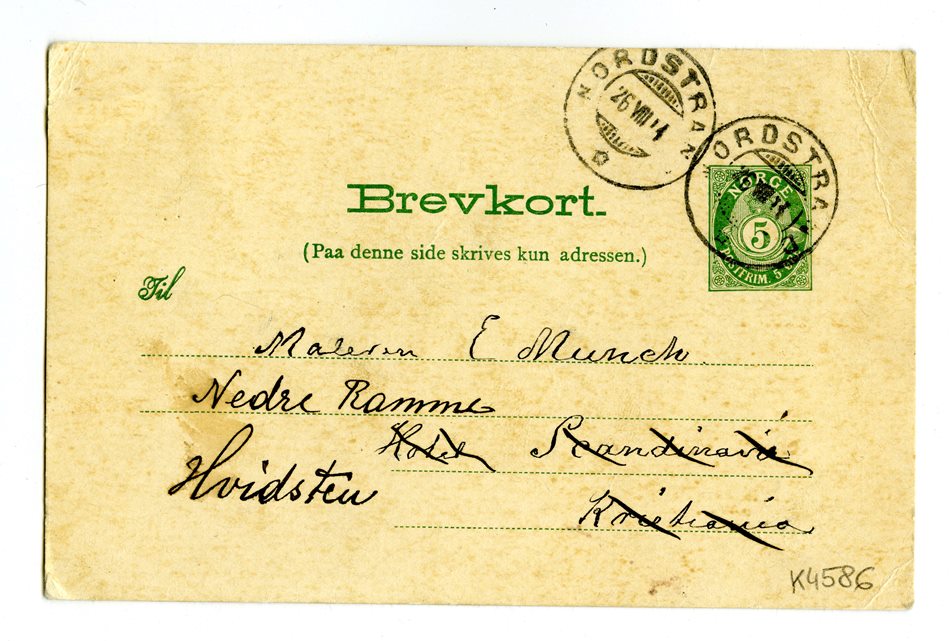 NORDSTRAN
26 VIII 14
ORDSTRA
NORGE
5
POSTFRIM. 5
Brevkort.
(Paa denne side skrives kun adressen.)
Til
Maleren E Munch.
Nedre Ramme
Hotel Scandinavie
Hvidsten
Kristiania
K4586